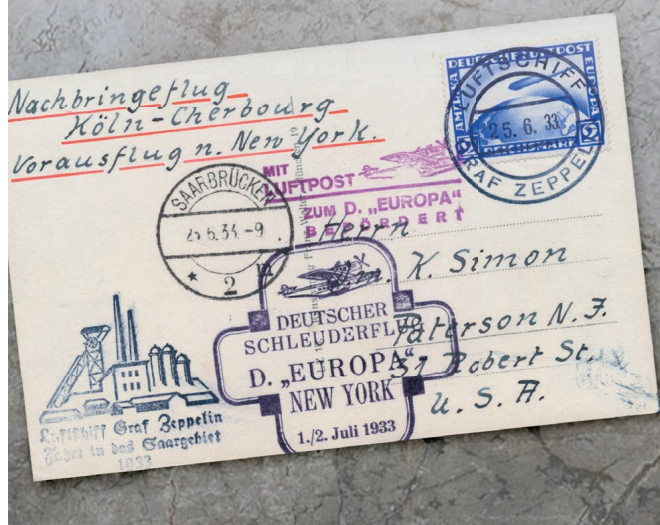 Nachbringeflug
Köln-Cherbourg
Vorausflug n. New York.
DEUTSCHE LUFTPOST
AMERIKA
EUROPA
2 2
REICHSMARK
LUFTSCHIFF
25. 6. 33.
GRAF ZEPPELIN
MIT
LUFTPOST
ZUM D. „EUROPA“
BEFÖRDERT
SAARBRÜCKEN
25.6.33.-9
* 2 m
Herrn
K. Simon
Paterson N. J.
37 Robert St.
U. S. A.
DEUTSCHER
SCHLEUDERFLUG
D. „EUROPA“-
NEW YORK
1./2. Juli 1933
Luftschiff Graf Zeppelin
Fahrt in das Saargebiet
1933